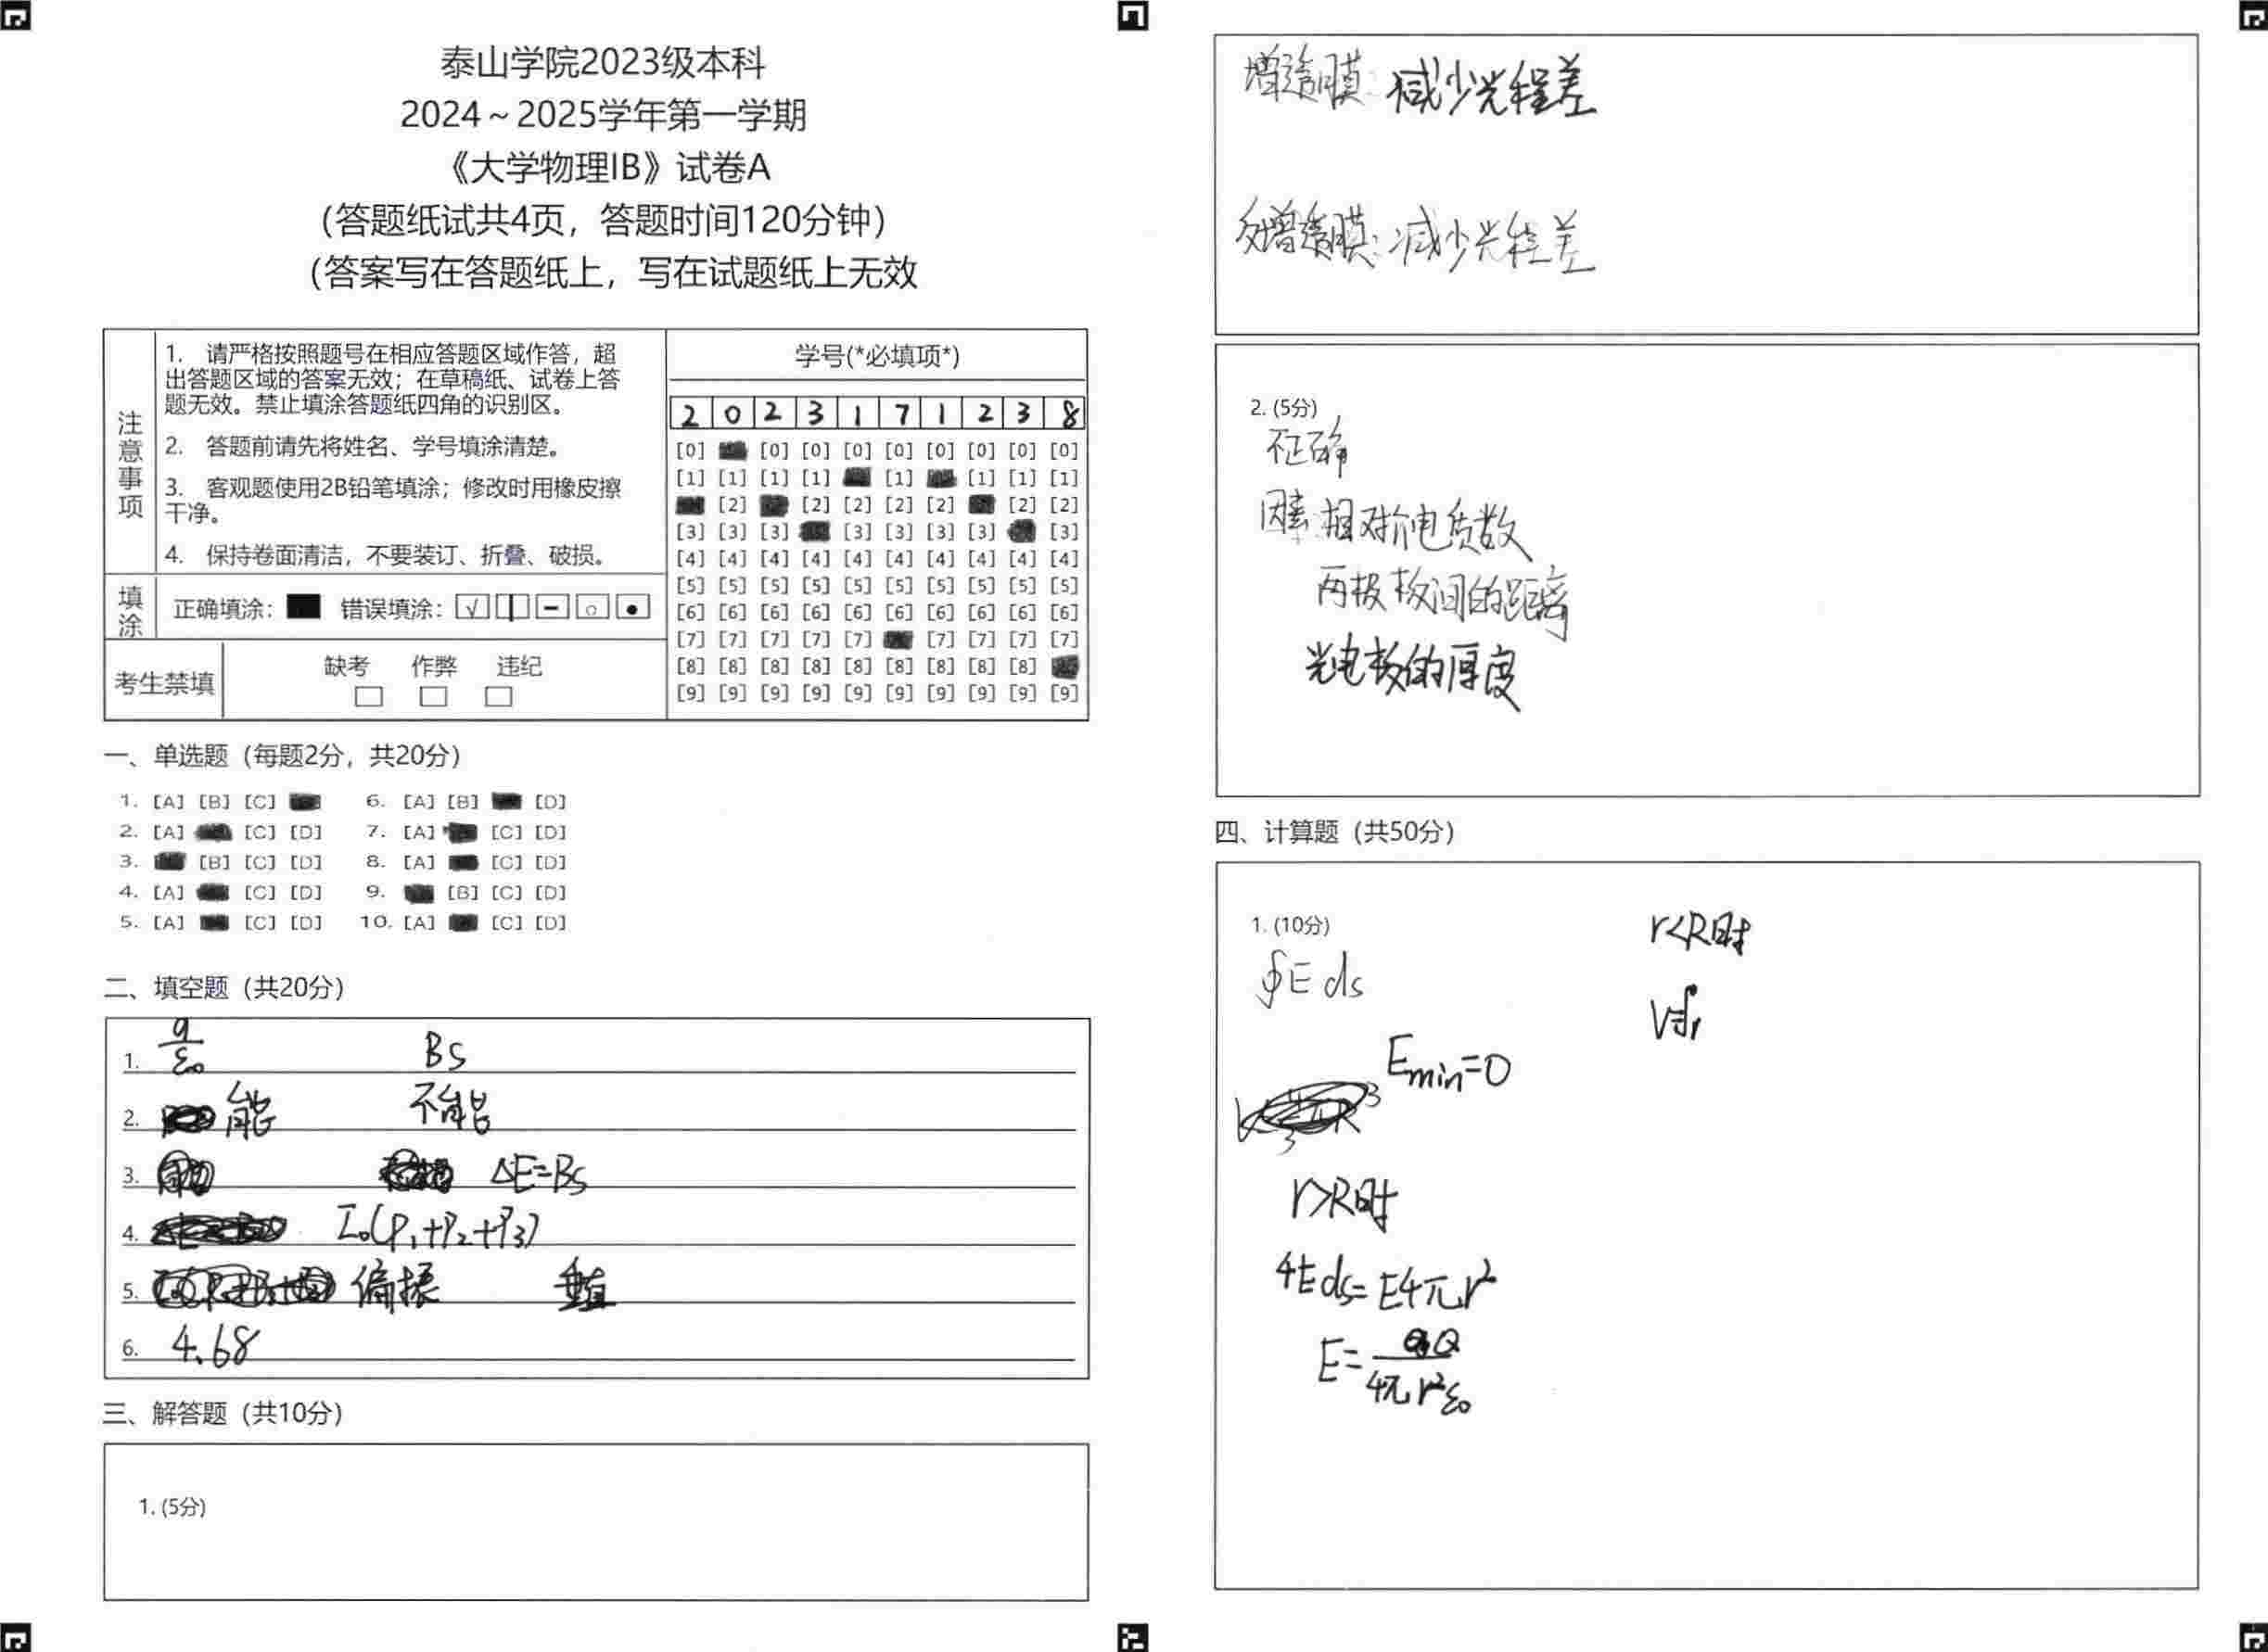 泰山学院2023级本科
2024～2025学年第一学期
《大学物理IB》试卷A
（答题纸试共4页，答题时间120分钟）
（答案写在答题纸上，写在试题纸上无效
注意事项
1. 请严格按照题号在相应答题区域作答，超
出答题区域的答案无效；在草稿纸、试卷上答
题无效。禁止填涂答题纸四角的识别区。
2. 答题前请先将姓名、学号填涂清楚。
3. 客观题使用2B铅笔填涂；修改时用橡皮擦
干净。
4. 保持卷面清洁，不要装订、折叠、破损。
填涂
正确填涂： 错误填涂：
考生禁填
缺考 作弊 违纪
学号(*必填项*)
2 0 2 3 1 7 1 2 3 8
[0] [0] [0] [0] [0] [0] [0] [0] [0]
[1] [1] [1] [1] [1] [1] [1] [1]
[2] [2] [2] [2] [2] [2] [2]
[3] [3] [3] [3] [3] [3] [3] [3]
[4] [4] [4] [4] [4] [4] [4] [4] [4] [4]
[5] [5] [5] [5] [5] [5] [5] [5] [5] [5]
[6] [6] [6] [6] [6] [6] [6] [6] [6] [6]
[7] [7] [7] [7] [7] [7] [7] [7] [7]
[8] [8] [8] [8] [8] [8] [8] [8] [8]
[9] [9] [9] [9] [9] [9] [9] [9] [9] [9]
一、单选题（每题2分，共20分）
1. [A] [B] [C] 6. [A] [B] [D]
2. [A] [C] [D] 7. [A] [C] [D]
3. [B] [C] [D] 8. [A] [C] [D]
4. [A] [C] [D] 9. [B] [C] [D]
5. [A] [C] [D] 10. [A] [C] [D]
二、填空题（共20分）
1. q/ε₀ BS
2. 能 不能
3. ΔE=BS
4. I₀(P₁+P₂+P₃)
5. 偏振 垂直
6. 4.68
三、解答题（共10分）
1. (5分)
增透膜：减少光程差
反增透膜：减少光程差
2. (5分)
不正确
因素：相对介电质数
两极板间的距离
光电板的厚度
四、计算题（共50分）
1. (10分)
∮E ds
E min=0
r>R时
∮E ds=E4πr²
E=Q/4πr²ε₀
r<R时
V=∫r